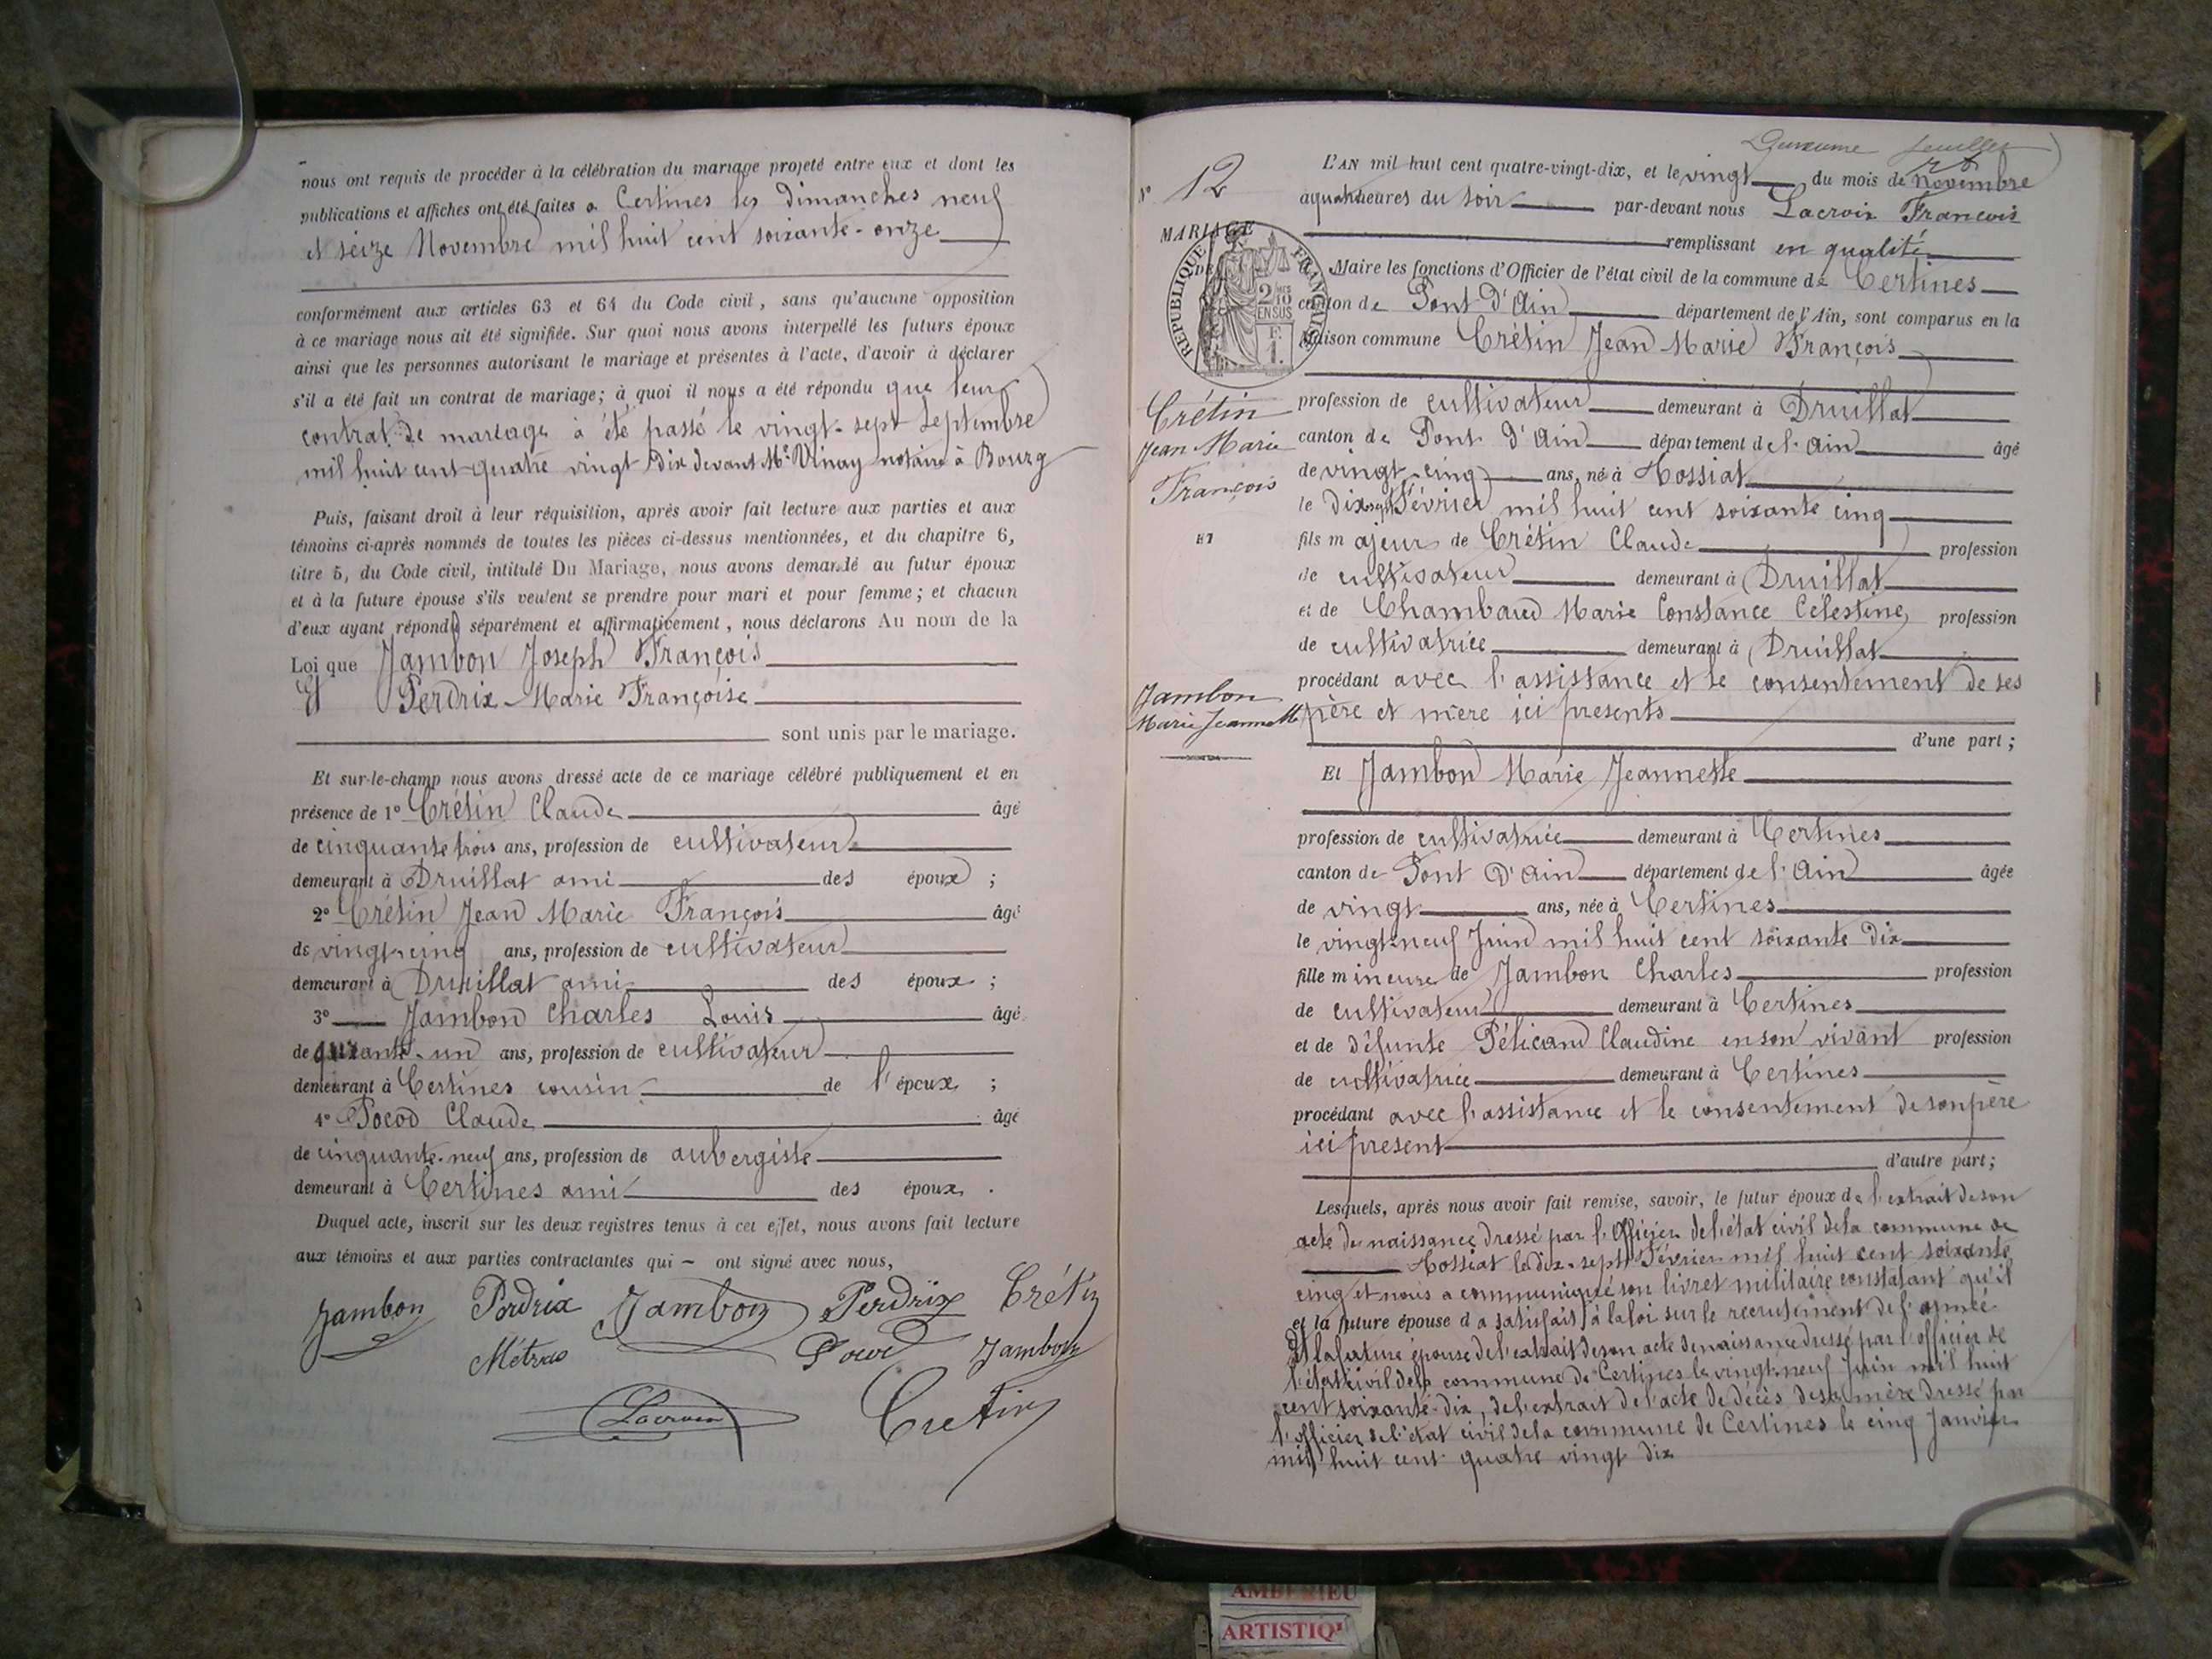 nous ont requis de procéder à la célébration du mariage projeté entre eux et dont les
publications et affiches ont été faites a Certines les dimanches neuf
et seize Novembre mil huit cent soixante-onze
conformément aux articles 63 et 64 du Code civil, sans qu'aucune opposition
à ce mariage nous ait été signifiée. Sur quoi nous avons interpellé les futurs époux
ainsi que les personnes autorisant le mariage et présentes à l'acte, d'avoir à déclarer
s'il a été fait un contrat de mariage; à quoi il nous a été répondu que leur
contrat de mariage à été passé le vingt-sept Septembre
mil huit cent quatre vingt dix devant Me Vinay notaire à Bourg
Puis, faisant droit à leur réquisition, après avoir fait lecture aux parties et aux
témoins ci-après nommés de toutes les pièces ci-dessus mentionnées, et du chapitre 6,
titre 5, du Code civil, intitulé Du Mariage, nous avons demandé au futur époux
et à la future épouse s'ils veulent se prendre pour mari et pour femme; et chacun
d'eux ayant répondu séparément et affirmativement, nous déclarons Au nom de la
Loi que Jambon Joseph François
Et Perdrix Marie Françoise
sont unis par le mariage.
Et sur-le-champ nous avons dressé acte de ce mariage célébré publiquement et en
présence de 1° Crétin Claude âgé
de cinquante trois ans, profession de cultivateur
demeurant à Druillat ami des époux;
2° Crétin Jean Marie François âgé
de vingt-cinq ans, profession de cultivateur
demeurant à Druillat ami des époux;
3° Jambon Charles Louis âgé
de quarante-un ans, profession de cultivateur
demeurant à Certines cousin de l'époux;
4° Pocod Claude âgé
de cinquante-neuf ans, profession de aubergiste
demeurant à Certines ami des époux.
Duquel acte, inscrit sur les deux registres tenus à cet effet, nous avons fait lecture
aux témoins et aux parties contractantes qui ~ ont signé avec nous,
Jambon Perdrix Jambon Perdrix Crétin
Métras Pocod Jambon
Lacroix Cretin
N° 12
MARIAGE
DE
RÉPUBLIQUE FRANÇAISE
2/10
EN SUS
F.
1.
Crétin
Jean Marie
François
ET
Jambon
Marie Jeannette
L'AN mil huit cent quatre-vingt-dix, et le vingt du mois de novembre
à quatre heures du soir par-devant nous Lacroix François
remplissant en qualité
de Maire les fonctions d'Officier de l'état civil de la commune de Certines
canton de Pont d'Ain département de l'Ain, sont comparus en la
Maison commune Crétin Jean Marie François
profession de cultivateur demeurant à Druillat
canton de Pont d'Ain département de l'Ain âgé
de vingt-cinq ans, né à Hossiat
le Dix-sept Février mil huit cent soixante cinq
fils majeur de Crétin Claude profession
de cultivateur demeurant à Druillat
et de Chambard Marie Constance Célestine profession
de cultivatrice demeurant à Druillat
procédant avec l'assistance et le consentement de ses
père et mère ici présents
d'une part;
Et Jambon Marie Jeannette
profession de cultivatrice demeurant à Certines
canton de Pont d'Ain département de l'Ain âgée
de vingt ans, née à Certines
le vingt-neuf Juin mil huit cent soixante dix
fille mineure de Jambon Charles profession
de cultivateur demeurant à Certines
et de défunte Pélicand Claudine en son vivant profession
de cultivatrice demeurant à Certines
procédant avec l'assistance et le consentement de son père
ici présent
d'autre part;
Lesquels, après nous avoir fait remise, savoir, le futur époux de l'extrait de son
acte de naissance dressé par l'Officier de l'état civil de la commune de
Hossiat le dix-sept Février mil huit cent soixante
cinq et nous a communiqué son livret militaire constatant qu'il
et la future épouse d a satisfait à la loi sur le recrutement de l'armée
Et la future épouse de l'extrait de son acte de naissance dressé par l'officier de
l'état civil de la commune de Certines le vingt-neuf Juin mil huit
cent soixante-dix, de l'extrait de l'acte de décès de sa mère dressé par
l'officier de l'état civil de la commune de Certines le cinq Janvier
mil huit cent quatre vingt dix
AMBERIEU
ARTISTIQ